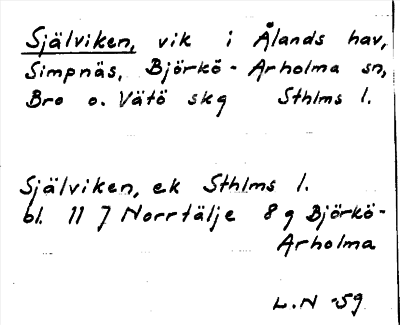 Själviken, vik i Ålands hav,
Simpnäs, Björkö-Arholma sn,
Bro o. Vätö skg Sthlms l.
Själviken, ek Sthlms l.
bl. 11 J Norrtälje 8 g Björkö-
Arholma
L.N -59